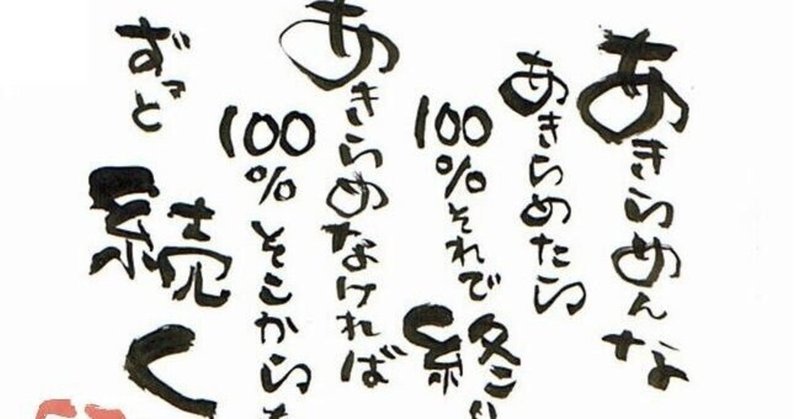 あきらめんな
あきらめたら
100%それで終り
あきらめなければ
100%そこから
ずっと続く